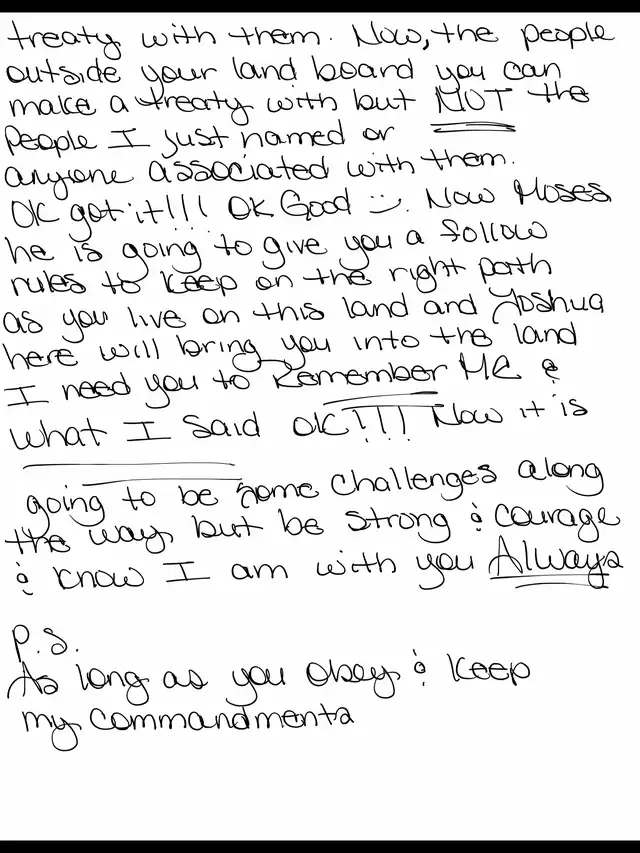 treaty with them. Now, the people
outside your land board you can
make a treaty with but NOT the
people I just named or
anyone associated with them.
OK got it!!! OK Good :). Now Moses
he is going to give you a follow
rules to keep on the right path
as you live on this land and Joshua
here will bring you into the land
I need you to Remember ME &
what I said OK!!! Now it is
going to be some challenges along
the way but be strong & courage
& know I am with you Always
P.S.
As long as you obey & keep
my commandments